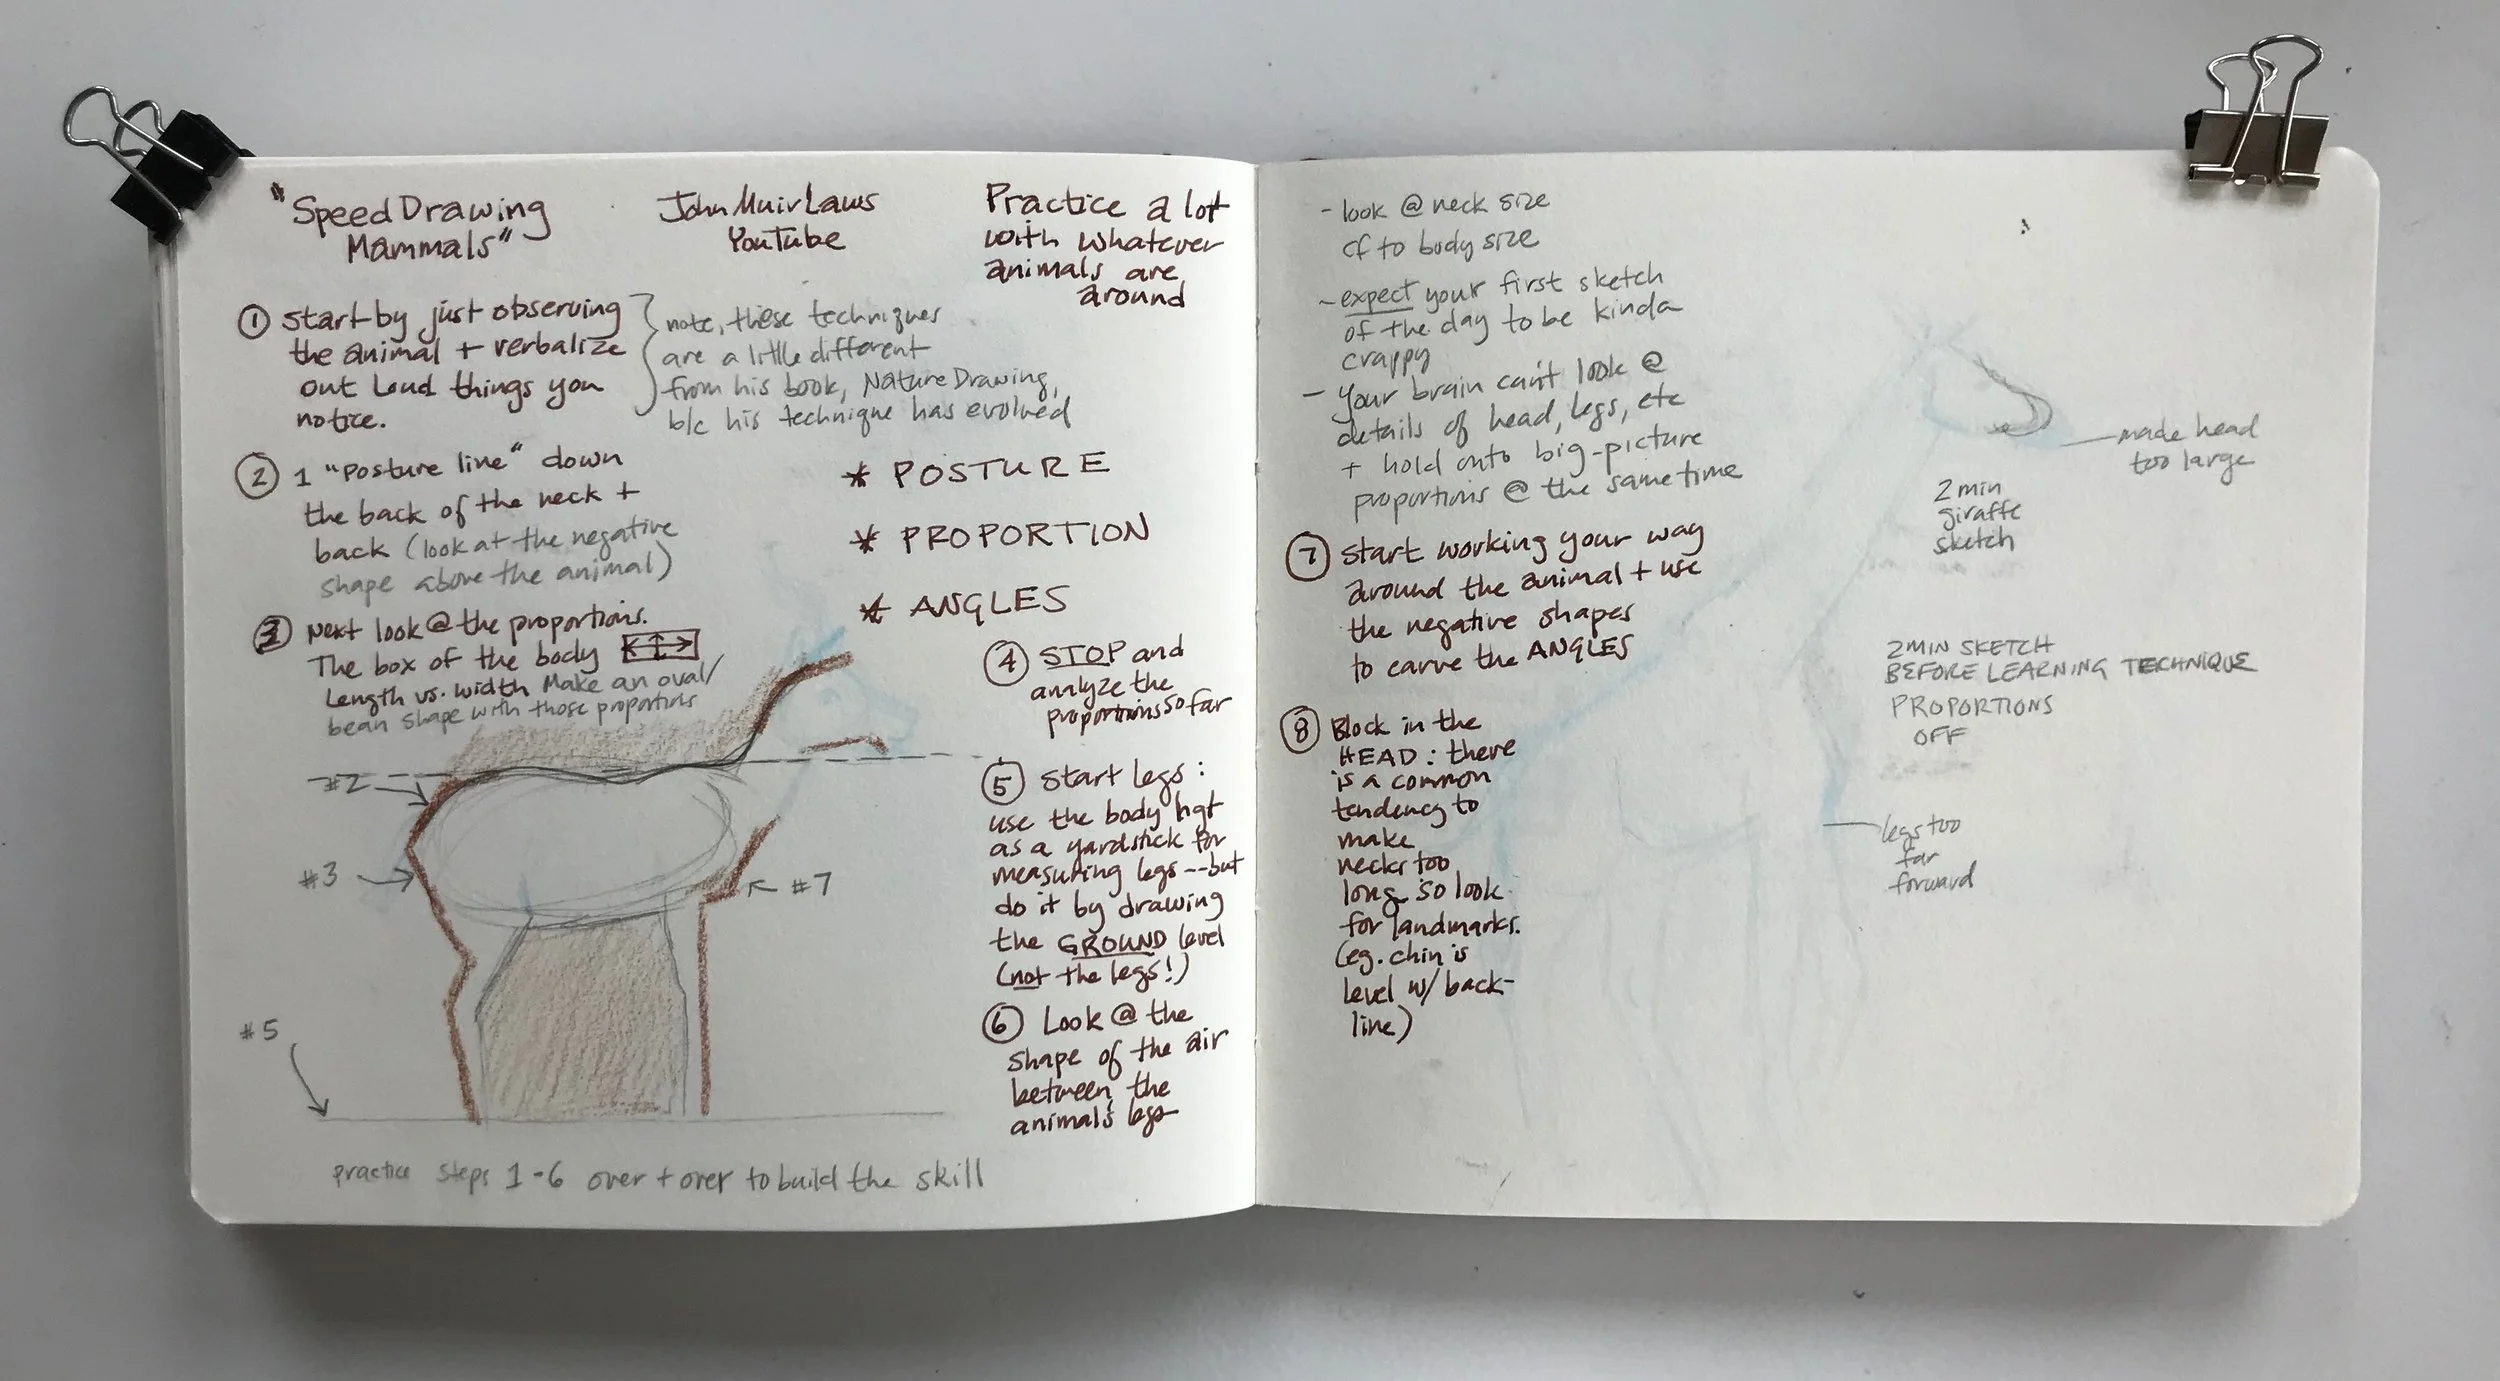 "Speed Drawing
Mammals"
John Muir Laws
YouTube
Practice a lot
with whatever
animals are
around
① Start by just observing
the animal + verbalize
out loud things you
notice.
note, these techniques
are a little different
from his book, Nature Drawing,
b/c his technique has evolved
② 1 "Posture line" down
the back of the neck +
back (look at the negative
shape above the animal)
* POSTURE
* PROPORTION
* ANGLES
③ Next look @ the proportions.
The box of the body
Length vs. width Make an oval/
bean shape with those proportions
④ STOP and
analyze the
proportions so far
⑤ Start legs:
use the body hgt
as a yardstick for
measuring legs -- but
do it by drawing
the GROUND level
(not the legs!)
⑥ Look @ the
shape of the air
between the
animal's legs
#2
#3
#7
#5
practice steps 1-6 over + over to build the skill
- look @ neck size
cf to body size
- expect your first sketch
of the day to be kinda
crappy
- your brain can't look @
details of head, legs, etc
+ hold onto big-picture
proportions @ the same time
⑦ Start working your way
around the animal + use
the negative shapes
to carve the ANGLES
⑧ Block in the
HEAD: there
is a common
tendency to
make
necks too
long so look
for landmarks.
(eg. chin is
level w/ back-
line)
made head
too large
2 min
giraffe
sketch
2 MIN SKETCH
BEFORE LEARNING TECHNIQUE
PROPORTIONS
OFF
legs too
far
forward